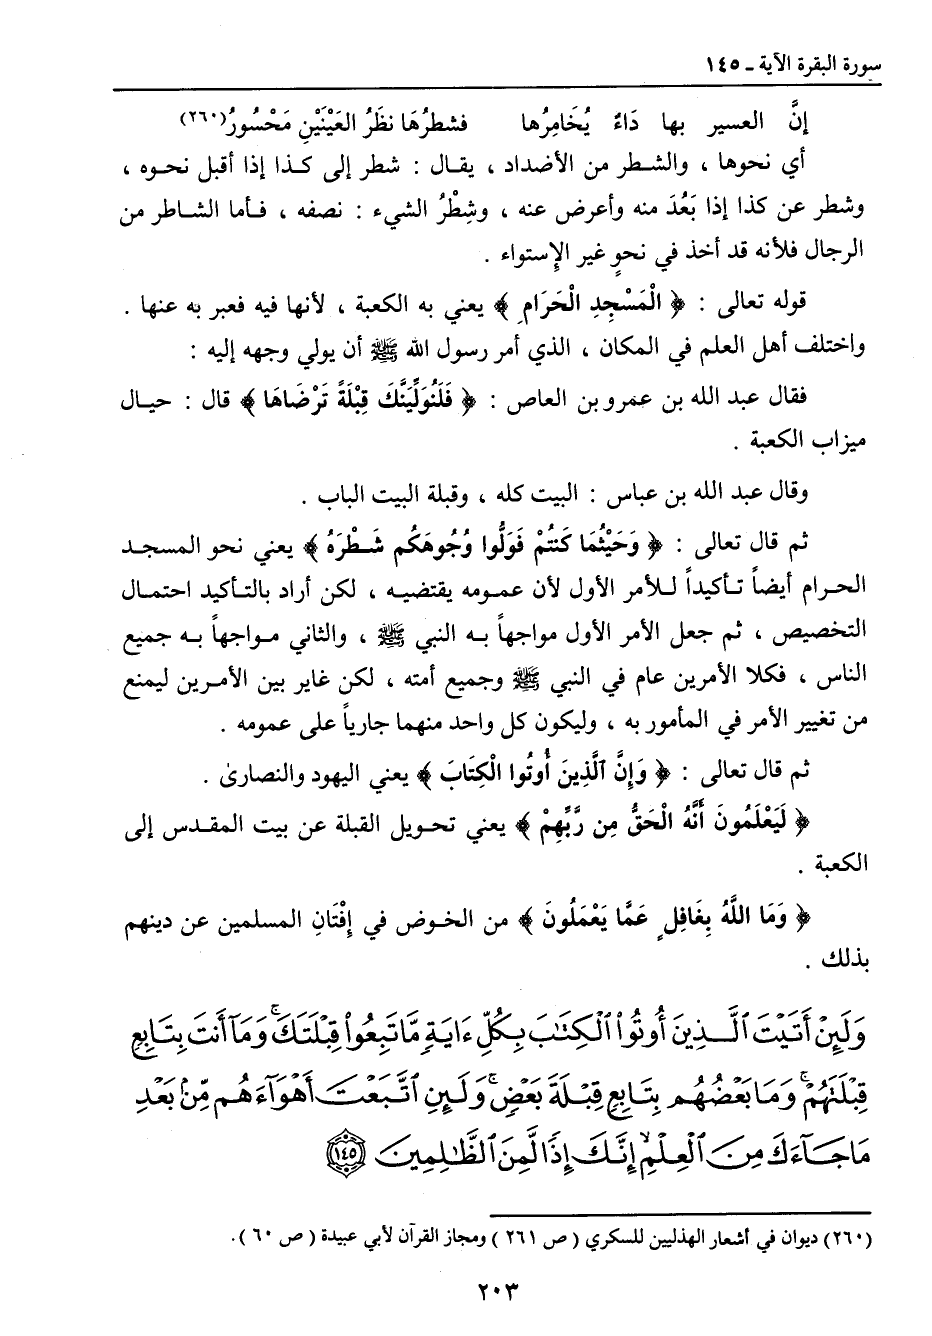 سورة البقرة الآية ـ ١٤٥
إنَّ العسير بها دَاءٌ يُخَامِرُها فشطرُهَا نظَرُ العَيْنَيْنِ مَحْسُورُ(٢٦٠)
أي نحوها ، والشطر من الأضداد ، يقال : شطر إلى كذا إذا أقبل نحوه ،
وشطر عن كذا إذا بَعُدَ منه وأعرض عنه ، وشِطْرُ الشيء : نصفه ، فأما الشاطر من
الرجال فلأنه قد أخذ في نحوٍ غير الإستواء .
قوله تعالى : ﴿ الْمَسْجِدِ الْحَرَامِ ﴾ يعني به الكعبة ، لأنها فيه فعبر به عنها .
واختلف أهل العلم في المكان ، الذي أمر رسول الله ﷺ أن يولي وجهه إليه :
فقال عبد الله بن عمرو بن العاص : ﴿ فَلَنُوَلِّيَنَّكَ قِبْلَةً تَرْضَاهَا ﴾ قال : حيال
ميزاب الكعبة .
وقال عبد الله بن عباس : البيت كله ، وقبلة البيت الباب .
ثم قال تعالى : ﴿ وَحَيْثُمَا كَنتُمْ فَوَلُّوا وُجُوهَكُم شَطْرَهُ ﴾ يعني نحو المسجد
الحرام أيضاً تأكيداً للأمر الأول لأن عمومه يقتضيه ، لكن أراد بالتأكيد احتمال
التخصيص ، ثم جعل الأمر الأول مواجهاً به النبي ﷺ ، والثاني مواجهاً به جميع
الناس ، فكلا الأمرين عام في النبي ﷺ وجميع أمته ، لكن غاير بين الأمرين ليمنع
من تغيير الأمر في المأمور به ، وليكون كل واحد منهما جارياً على عمومه .
ثم قال تعالى : ﴿ وَإِنَّ الَّذِينَ أُوتُوا الْكِتَابَ ﴾ يعني اليهود والنصارىٰ .
﴿ لَيَعْلَمُونَ أَنَّهُ الْحَقُّ مِن رَّبِّهِمْ ﴾ يعني تحويل القبلة عن بيت المقدس إلى
الكعبة .
﴿ وَمَا اللَّهُ بِغَافِلٍ عَمَّا يَعْمَلُونَ ﴾ من الخوض في إفْتَانِ المسلمين عن دينهم
بذلك .
وَلَئِنْ أَتَيْتَ ٱلَّذِينَ أُوتُوا۟ ٱلْكِتَٰبَ بِكُلِّ ءَايَةٍ مَّا تَبِعُوا۟ قِبْلَتَكَ ۚ وَمَآ أَنتَ بِتَابِعٍ
قِبْلَتَهُمْ ۚ وَمَا بَعْضُهُم بِتَابِعٍ قِبْلَةَ بَعْضٍ ۚ وَلَئِنِ ٱتَّبَعْتَ أَهْوَآءَهُم مِّنۢ بَعْدِ
مَا جَآءَكَ مِنَ ٱلْعِلْمِ ۙ إِنَّكَ إِذًا لَّمِنَ ٱلظَّٰلِمِينَ ١٤٥
(٢٦٠) ديوان في أشعار الهذليين للسكري ( ص ٢٦١ ) ومجاز القرآن لأبي عبيدة ( ص ٦٠ ).
٢٠٣